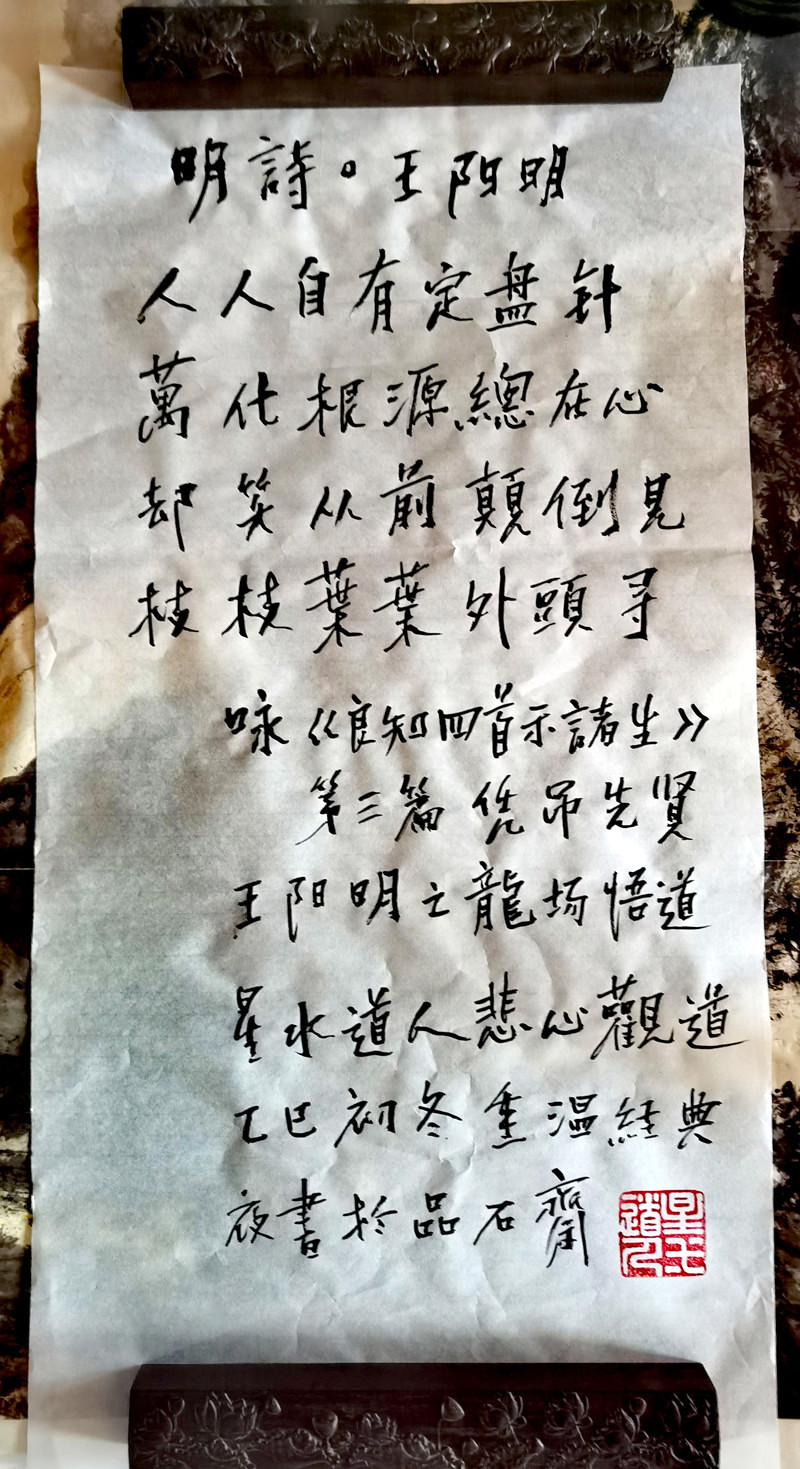 明詩。王阳明
人人自有定盘針
萬化根源總在心
却笑从前顛倒見
枝枝葉葉外頭寻
咏《良知四首示諸生》
第三篇 凭吊先贤
王阳明之龍场悟道
星水道人悲心觀道
乙巳初冬重温經典
夜書於品石齋